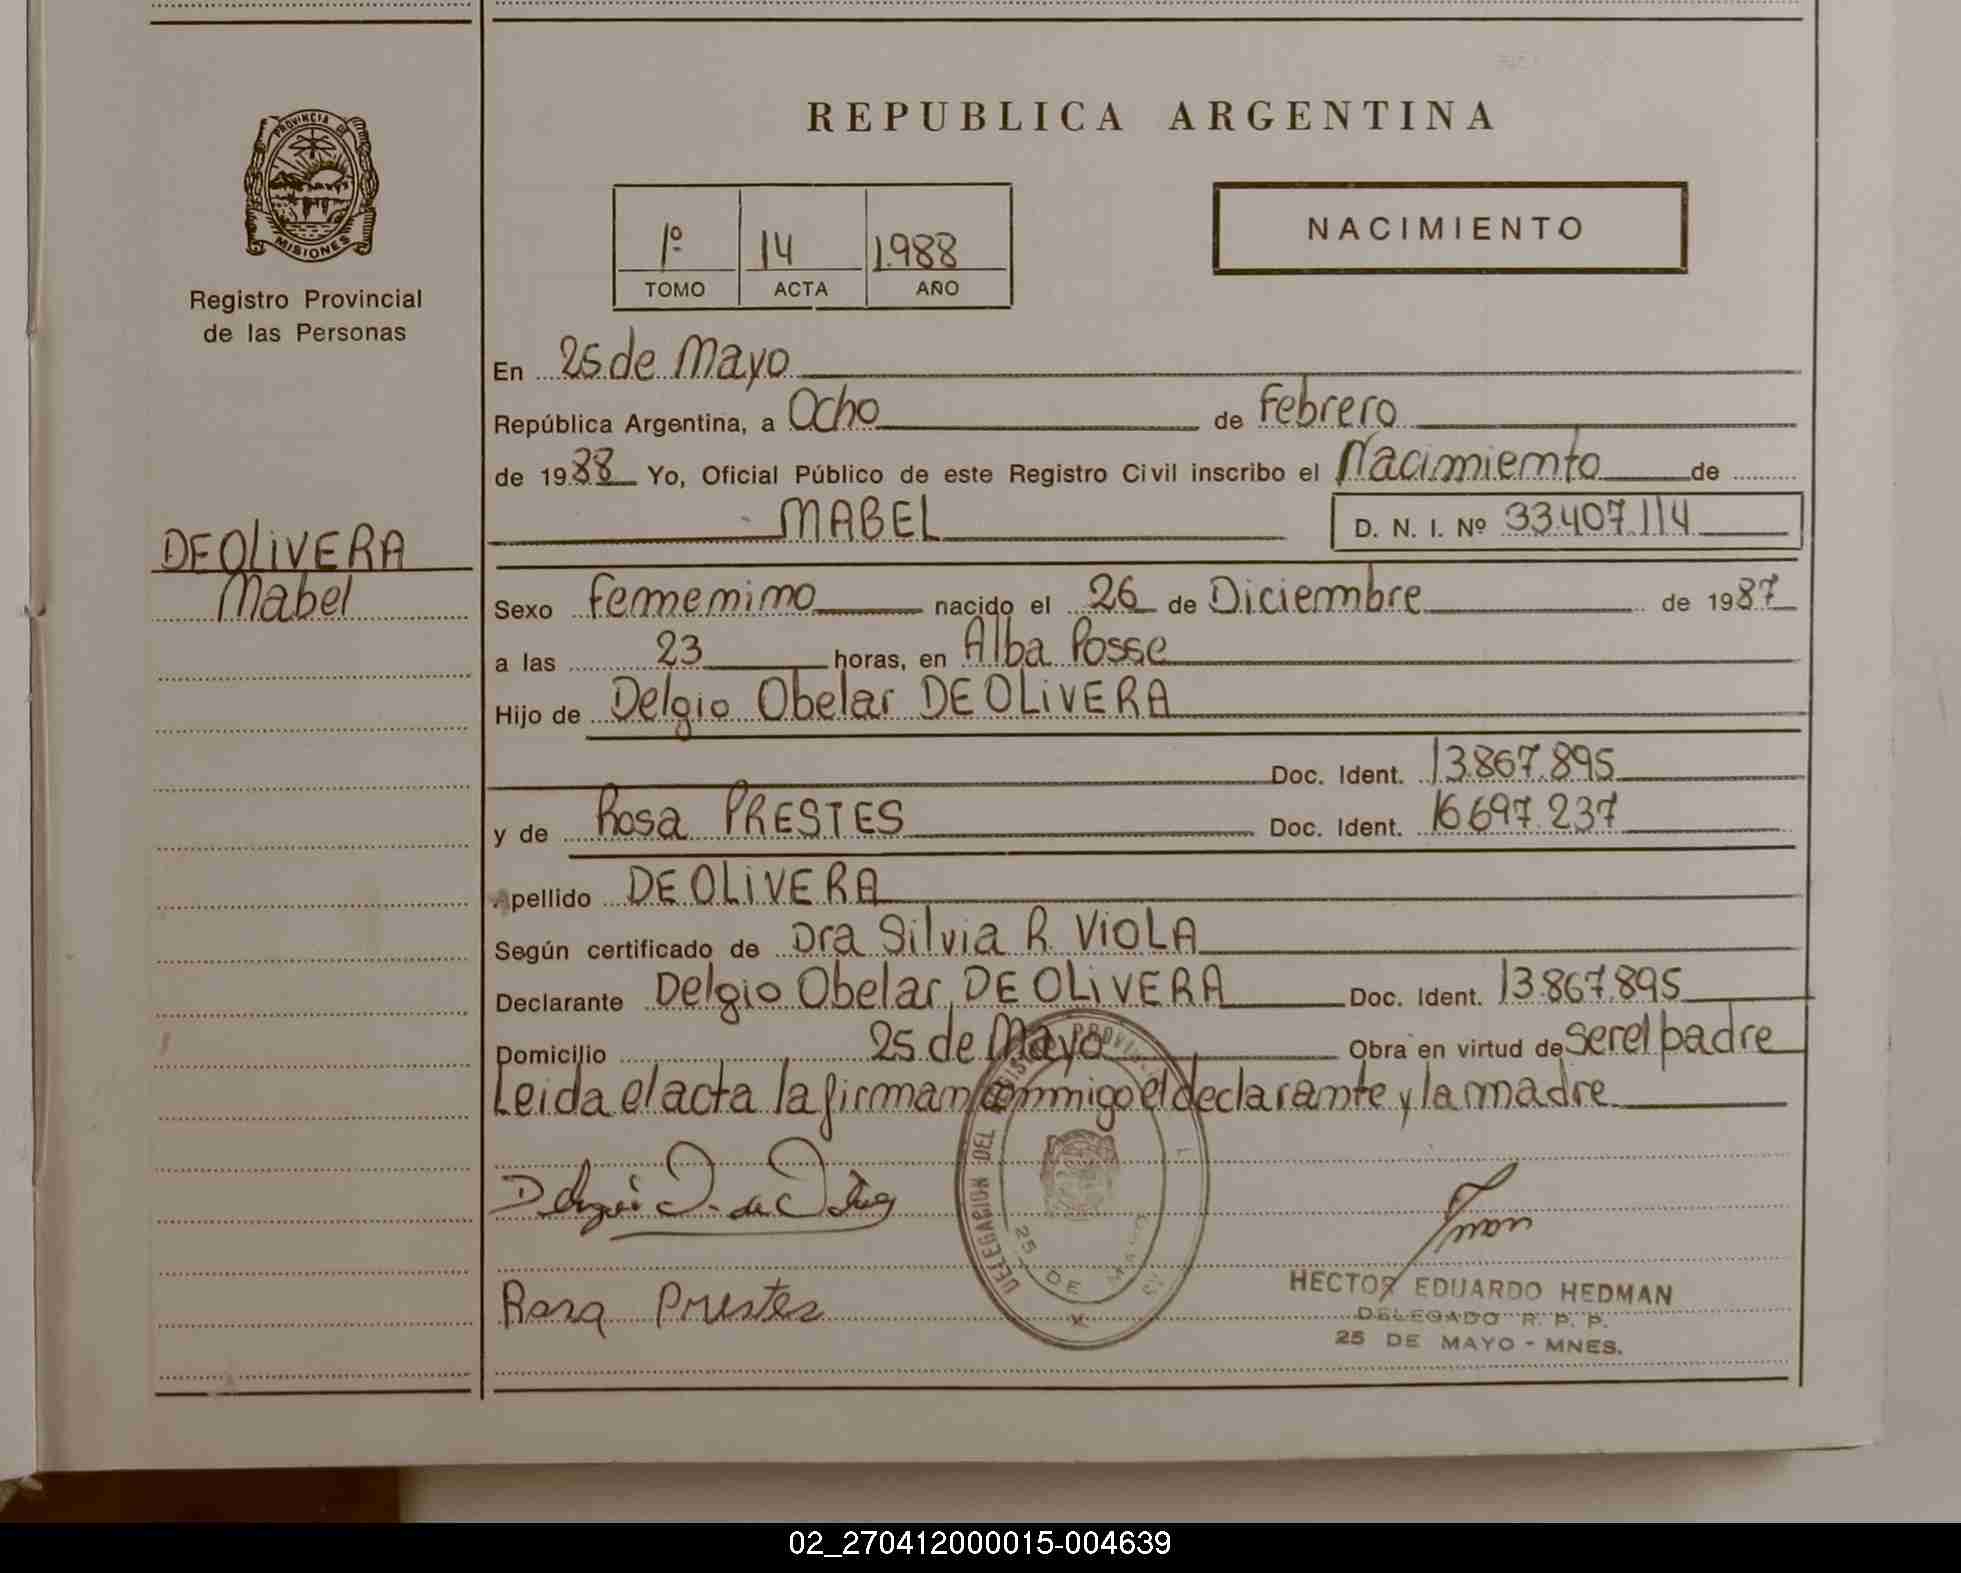 PROVINCIA DE
MISIONES
Registro Provincial
de las Personas
DE OLIVERA
Mabel
REPUBLICA ARGENTINA
1º 14 1.988
TOMO ACTA AÑO
NACIMIENTO
En 25 de Mayo
República Argentina, a Ocho de Febrero
de 1988 Yo, Oficial Público de este Registro Civil inscribo el Nacimiento de
MABEL D. N. I. Nº 33.407.114
Sexo Femenino nacido el 26 de Diciembre de 1987
a las 23 horas, en Alba Posse
Hijo de Delgio Obelar DE OLIVERA
Doc. Ident. 13.867.895
y de Rosa PRESTES Doc. Ident. 16.697.237
Apellido DE OLIVERA
Según certificado de Dra Silvia R. VIOLA
Declarante Delgio Obelar DE OLIVERA Doc. Ident. 13.867.895
Domicilio 25 de Mayo Obra en virtud de ser el padre
Leida el acta la firman conmigo el declarante y la madre
DELEGACION DEL PROVINCIAL
25 DE MAYO
Rosa Prestes
HECTOR EDUARDO HEDMAN
DELEGADO R. P. P.
25 DE MAYO - MNES.
02_270412000015-004639